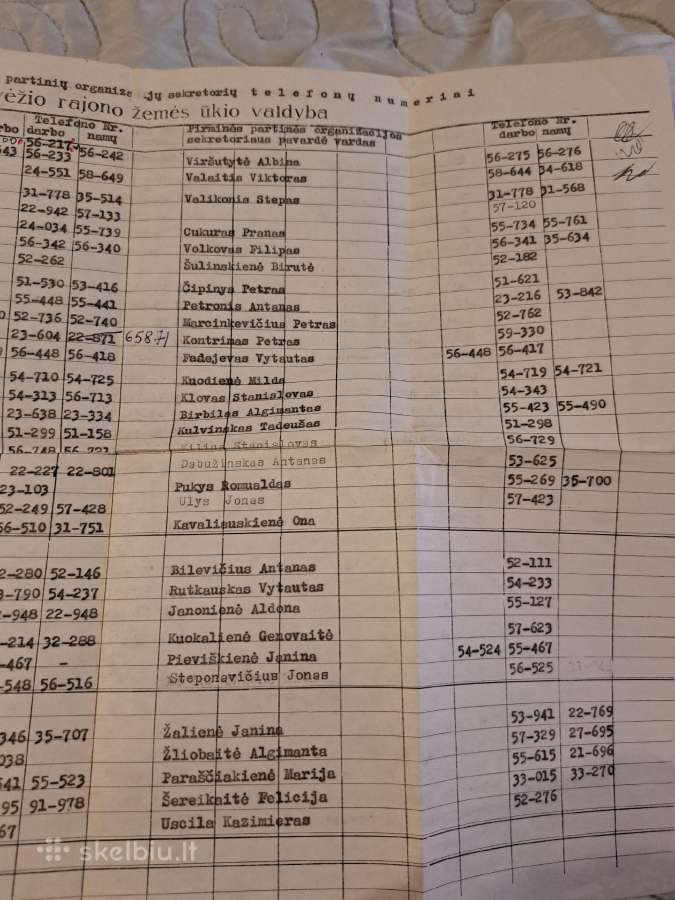 partinių organiza jų sekretorių telefonų numeriai
ėžio rajono žemės ūkio valdyba
Telefono Nr. Telefono Nr.
rbo darbo namų Pirminės partinės organizacijos darbo namų
56-217 sekretoriaus pavardė vardas
643 56-233 56-242 Viršutytė Albina 56-275 56-276
24-551 58-649 Valaitis Viktoras 58-644 34-618
31-778 35-514 Valikonis Stepas 31-778 31-568
22-942 57-133 57-120
24-034 55-739 Cukuras Pranas 55-734 55-761
56-342 56-340 Volkovas Filipas 56-341 35-634
52-262 Šulinskienė Birutė 52-182
51-530 53-416 Čipinys Petras 51-621
55-448 55-441 Petronis Antanas 23-216 53-842
52-736 52-740 Marcinkevičius Petras 52-762
23-604 22-871 65871 Kontrimas Petras 59-330
56-448 56-418 Fadejevas Vytautas 56-448 56-417
54-710 54-725 Kuodienė Milda 54-719 54-721
54-313 56-713 Klovas Stanislovas 54-343
23-638 23-334 Birbilas Algimantas 55-423 55-490
51-299 51-158 Kulvinskas Tadeušas 51-298
Stanislovas 56-729
22-227 22-801 Dabužinskas Antanas 53-625
23-103 Pukys Romualdas 55-269 35-700
52-249 57-428 Ulys Jonas 57-423
56-510 31-751 Kavaliauskienė Ona
2-280 52-146 Bilevičius Antanas 52-111
3-790 54-237 Rutkauskas Vytautas 54-233
-948 22-948 Janonienė Aldona 55-127
-214 32-288 Kuokalienė Genovaitė 57-623
-467 - Pieviškienė Janina 54-524 55-467
-548 56-516 Steponavičius Jonas 56-525
346 35-707 Žalienė Janina 53-941 22-769
038 Žliobaitė Algimanta 57-329 27-695
641 55-523 Paraščiakienė Marija 55-615 21-696
95 91-978 Šereikaitė Felicija 33-015 33-270
67 Uscila Kazimieras 52-276
skelbiu.lt